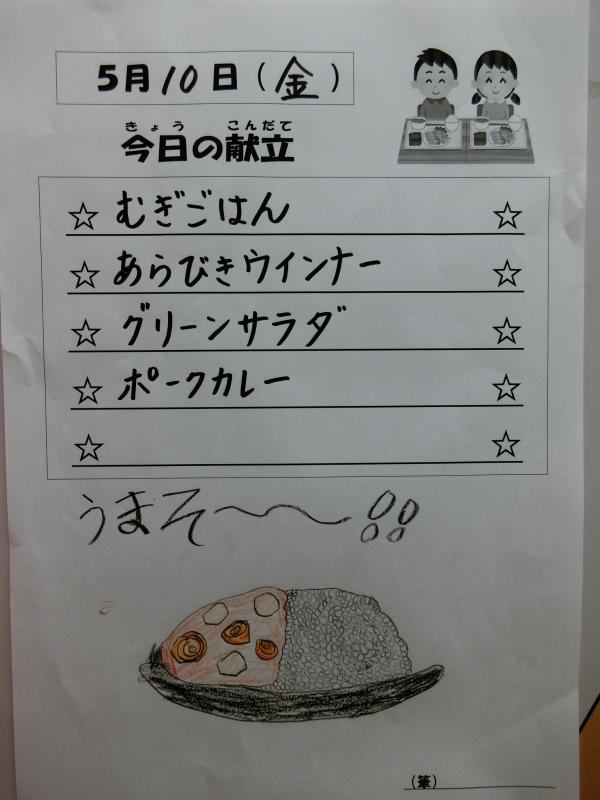 5月10日(金)
きょう こんだて
今日の献立
☆ むぎごはん ☆
☆ あらびきウインナー ☆
☆ グリーンサラダ ☆
☆ ポークカレー ☆
☆ ☆
うまそ〜〜!!
(筆)